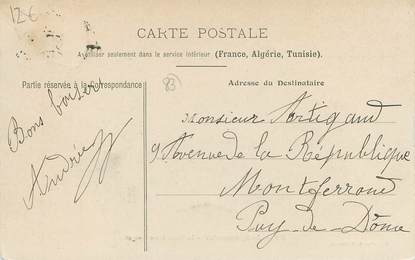 12€
CARTE POSTALE
A utiliser seulement dans le service intérieur (France, Algérie, Tunisie).
Partie réservée à la Correspondance
Adresse du Destinataire
83
Bons baisers
Andrée
Monsieur Artigaud
9 Avenue de la République
Montferrand
Puy-de-Dôme